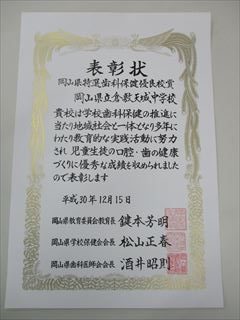 表彰状
岡山県特選歯科保健優良校賞
岡山県立倉敷天城中学校
貴校は学校歯科保健の推進に
当たり地域社会と一体となり多年に
わたり教育的な実践活動に努力
され児童生徒の口腔・歯の健康
づくりに優秀な成績を収められました
ので表彰します
平成30年12月15日
岡山県教育委員会教育長 鍵本芳明
岡山県学校保健会会長 松山正春
岡山県歯科医師会会長 酒井昭則